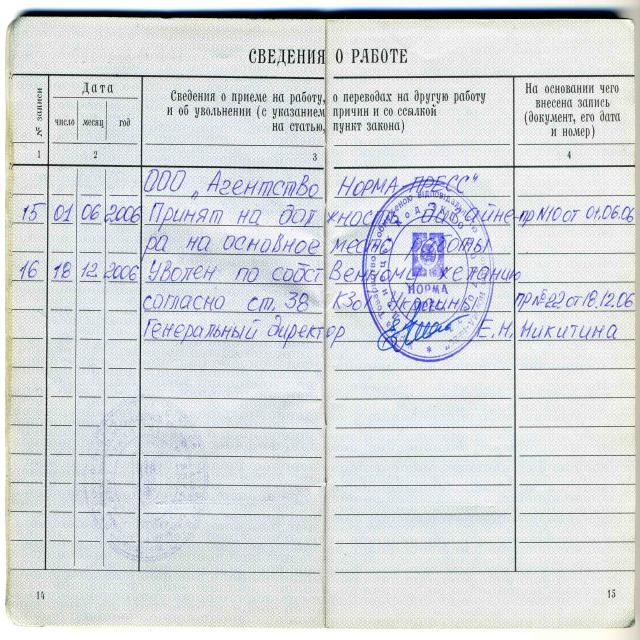 СВЕДЕНИЯ О РАБОТЕ
№ записи
Дата
число месяц год
Сведения о приеме на работу, о переводах на другую работу
и об увольнении (с указанием причин и со ссылкой
на статью, пункт закона)
На основании чего
внесена запись
(документ, его дата
и номер)
1 2 3 4
ООО „Агентство НОРМА-ПРЕСС"
15 01 06 2006 Принят на должность дизайне- пр N10 от 01.06.06
ра на основное место работы
16 18 12 2006 Уволен по собственному желанию
согласно ст. 38 КЗоТ Украины пр №22 от 18.12.06
Генеральный директор Е.Н. Никитина
НОРМА
14 15